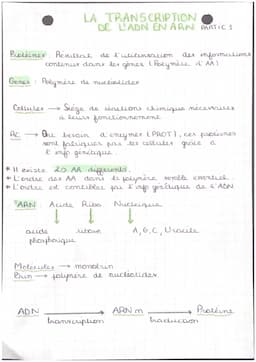 LA TRANSCRIPTION
DE L'ADN EN ARN PARTIE 1
Protéines : Résultat de l'utilisation des informations
contenues dans les gènes (Polymère d'AA)
Gènes : Polymère de nucléotides
Cellules → Siège de réactions chimiques nécessaires
à leur fonctionnement
RC → Ont besoin d'enzymes (PROT), ces protéines
sont fabriquées par les cellules grâce à
l'info génétique.
* Il existe 20 AA différents.
* L'ordre des AA dans le polymère semble essentiel.
* L'ordre est contrôlée par l'info génétique de l'ADN
ARN Acide Ribo Nucléique
acide ribose A, G, C, Uracile
phosphorique
Molécules → monobrin
Brin → polymère de nucléotides
ADN → ARN m → Protéine
transcription traduction